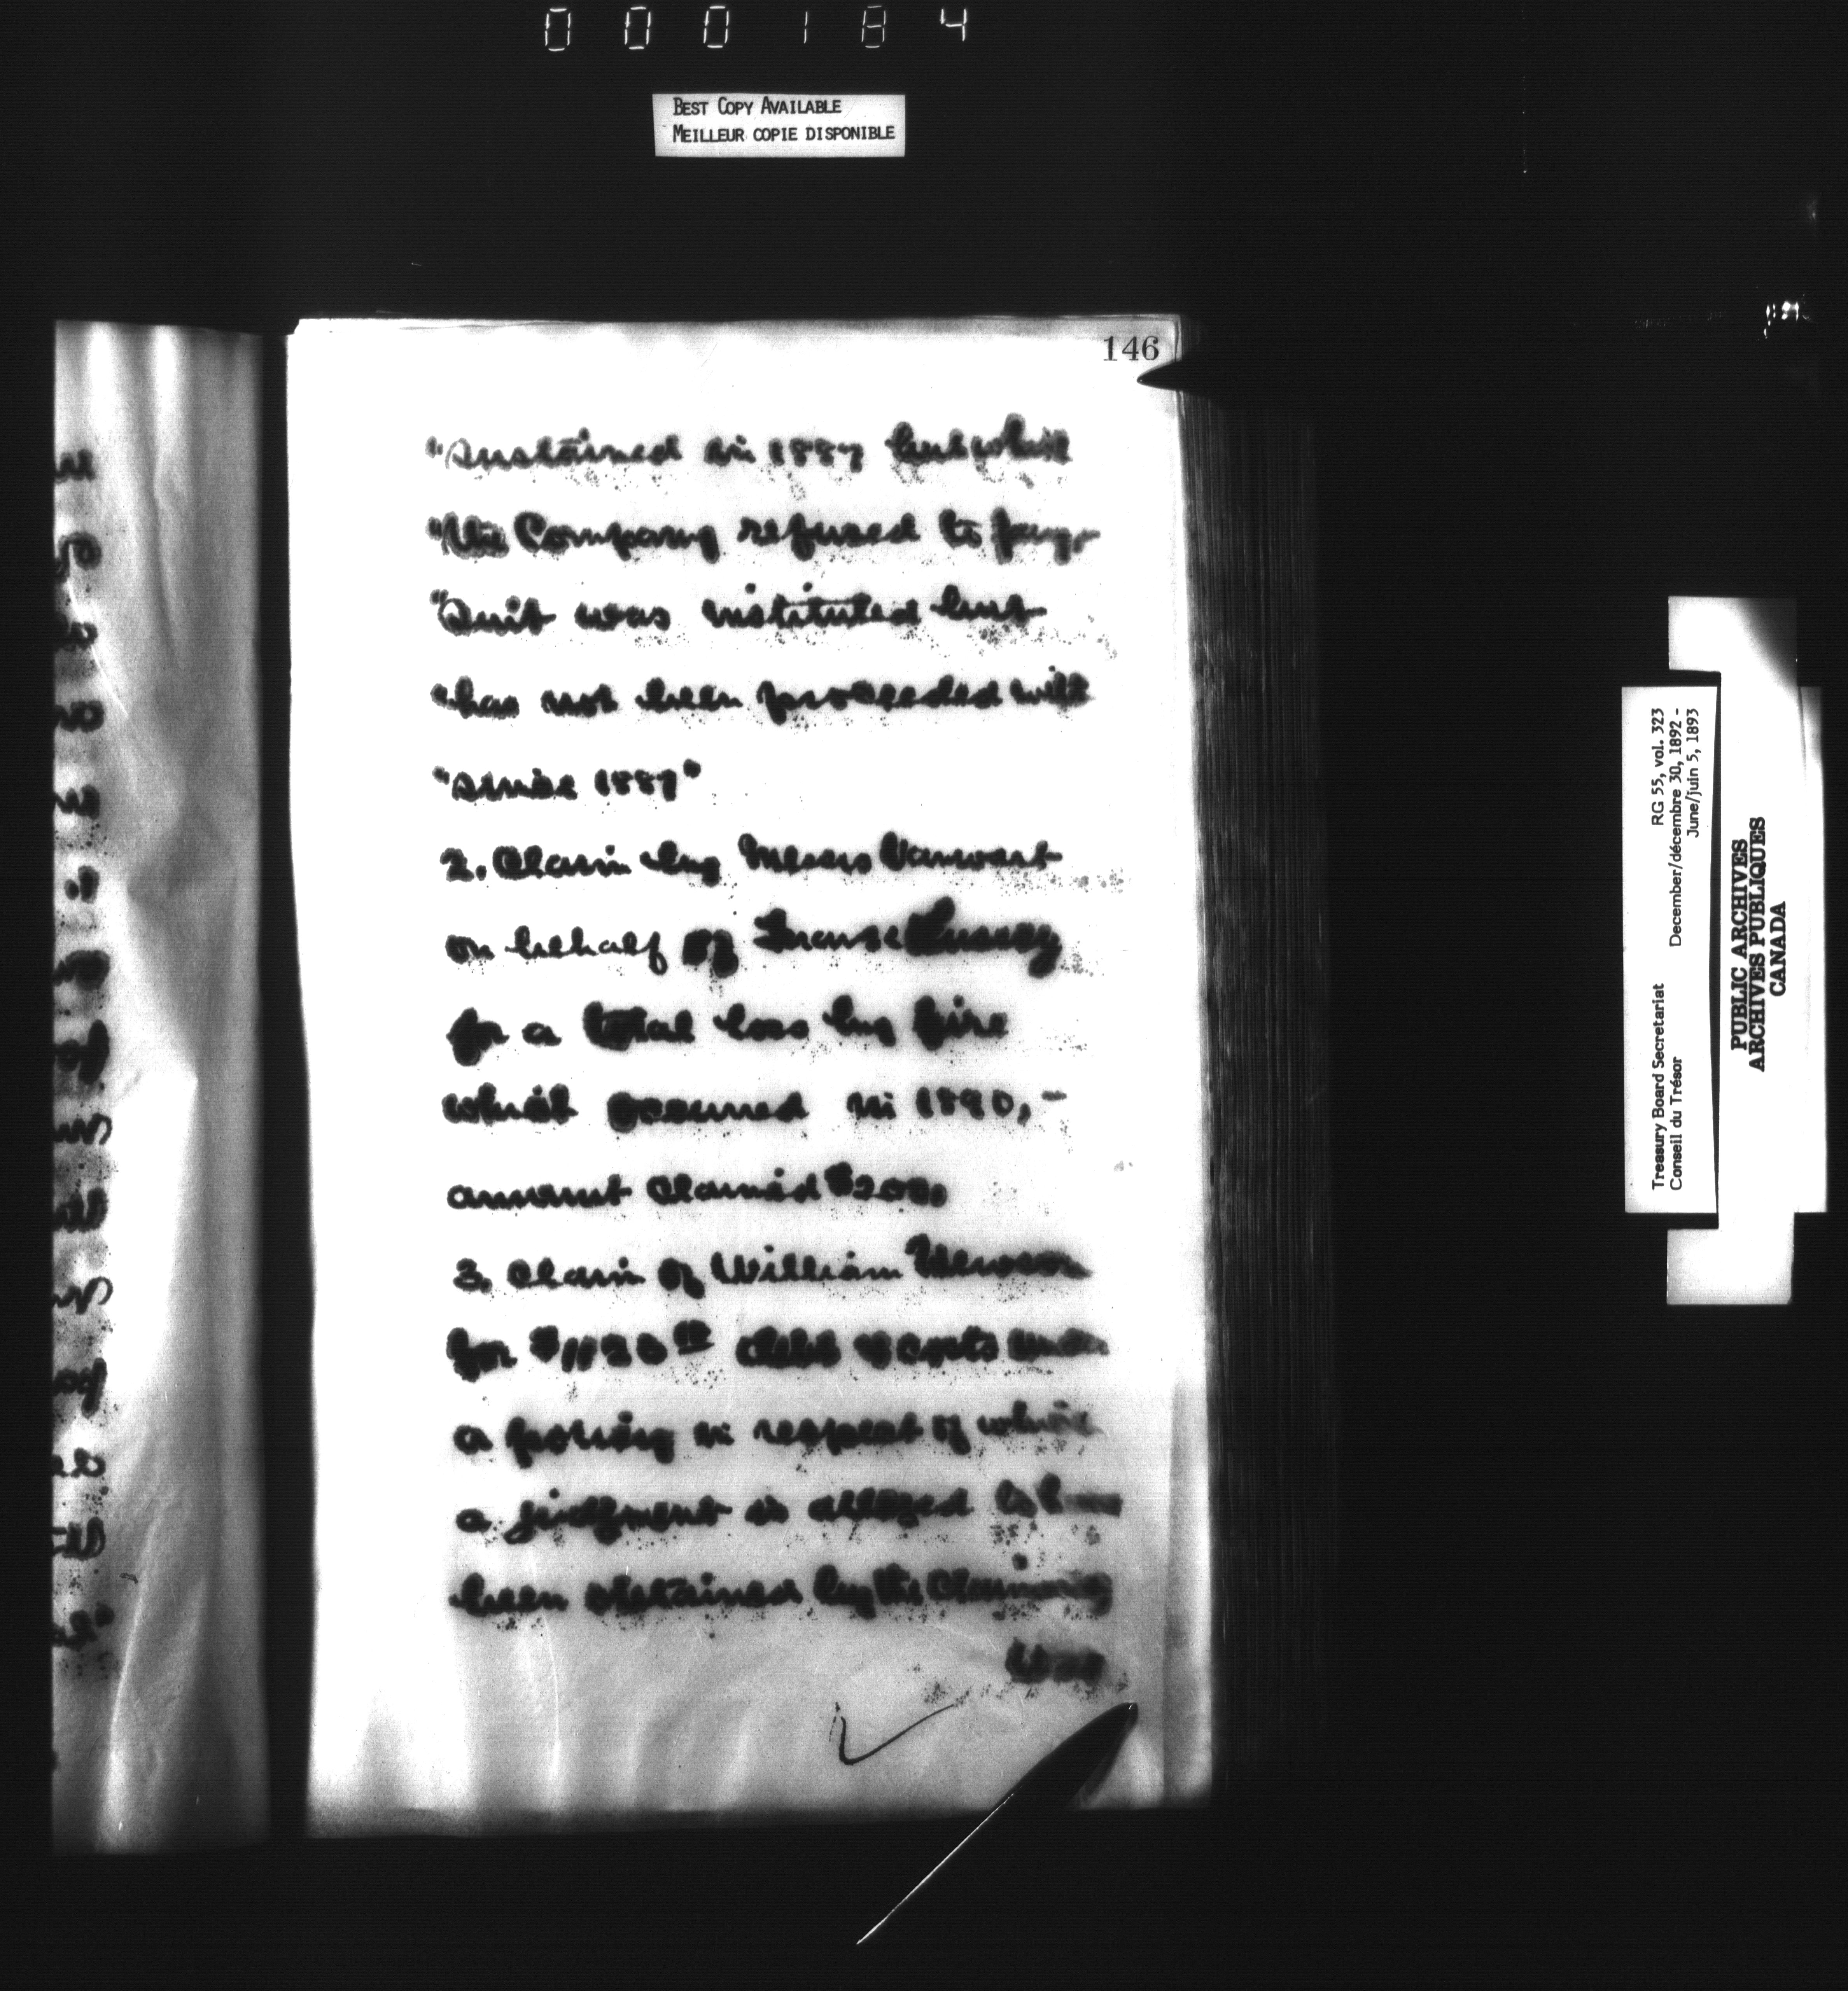 000184
BEST COPY AVAILABLE
MEILLEUR COPIE DISPONIBLE
146
"sustained in 1887 but which
"the Company refused to pay,
"Suit was instituted but
"has not been proceeded with
"since 1887"
2. Claim by Messrs Vanwart
on behalf of
for a total loss by fire
which occurred in 1890,-
amount claimed $2000
3. Claim of William
for debt & costs under
a policy in respect of which
a judgment is alleged to have
been obtained by the
Treasury Board Secretariat RG 55, vol. 323
Conseil du Trésor December/décembre 30, 1892 -
June/juin 5, 1893
PUBLIC ARCHIVES
ARCHIVES PUBLIQUES
CANADA